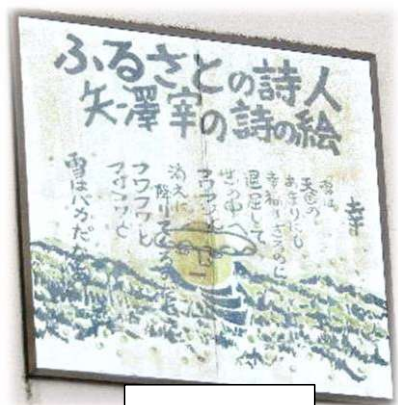 ふるさとの詩人
矢澤宰の詩の絵
幸
雪は、
天国の
あまりにも
幸福すぎるのに
退屈して
世の中へ
フワフワと
消えに
降りてくる
フワフワと
フワフワと
雪はバカだなあ